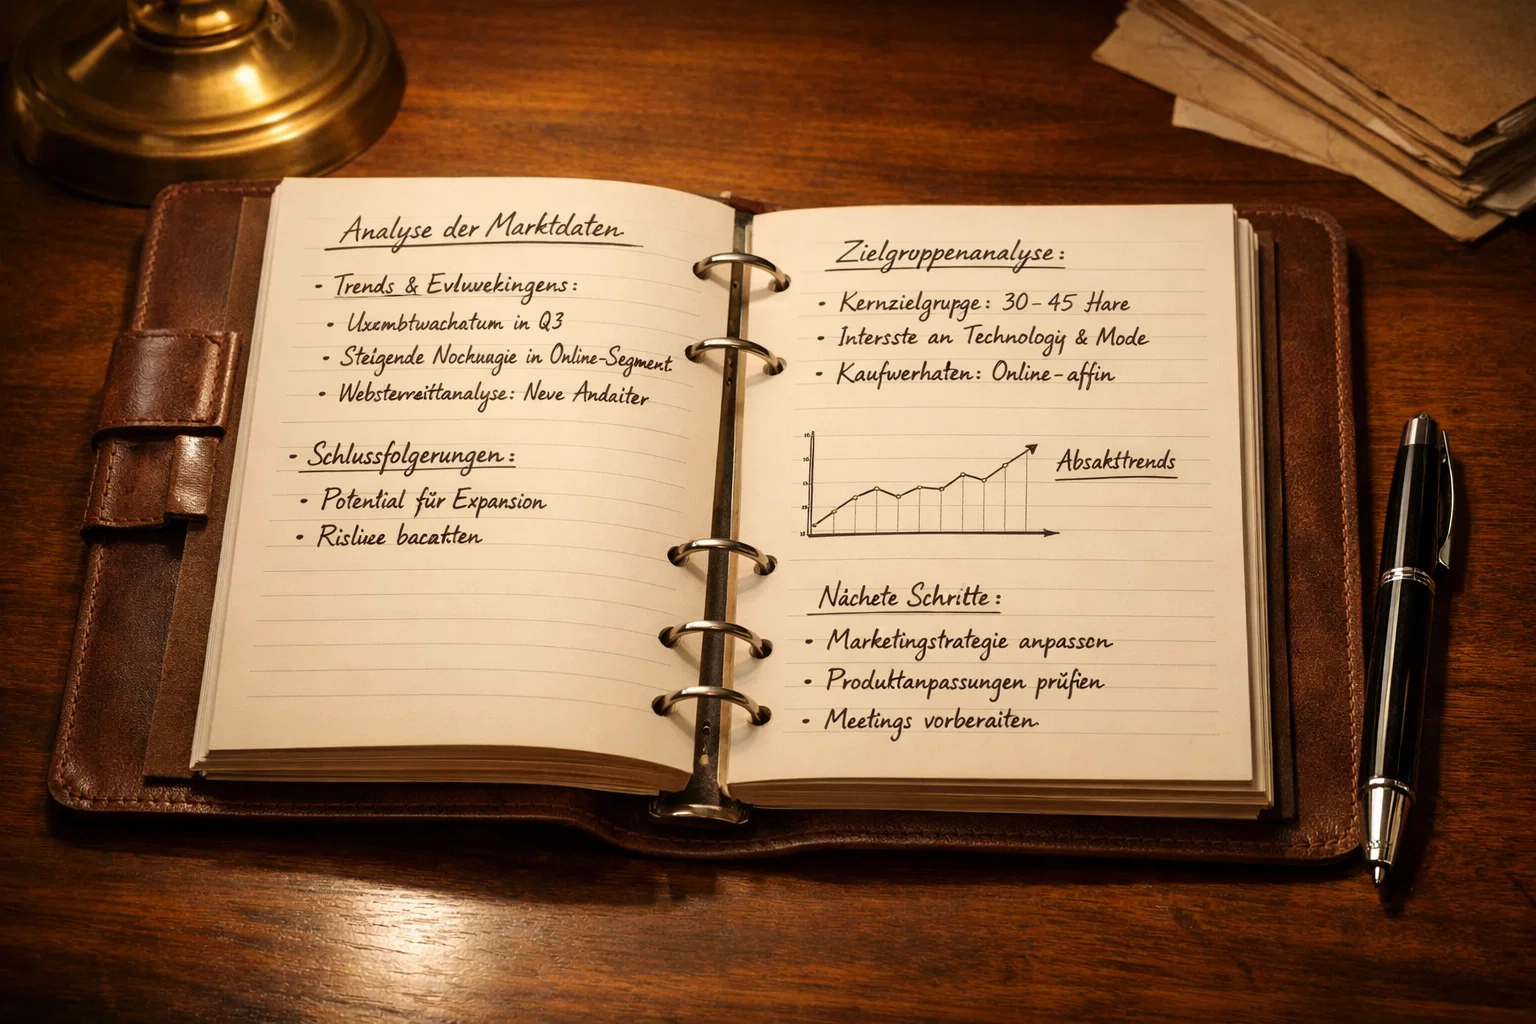 Analyse der Marktdaten
• Trends & Evluwekingens:
• Uxembtwachatum in Q3
• Steigende Nockuagie in Online-Segment.
• Websterreittanalyse: Neve Andaiter
• Schlussfolgerungen:
• Potential für Expansion
• Risliee bacakten
Zielgruppenanalyse:
• Kernzielgrupge: 30-45 Hare
• Intersste an Technology & Mode
• Kaufwerhaten: Online-affin
Absakttrends
Nächete Schritte:
• Marketingstrategie anpassen
• Produktanpassungen prüfien
• Meetings vorberaiten